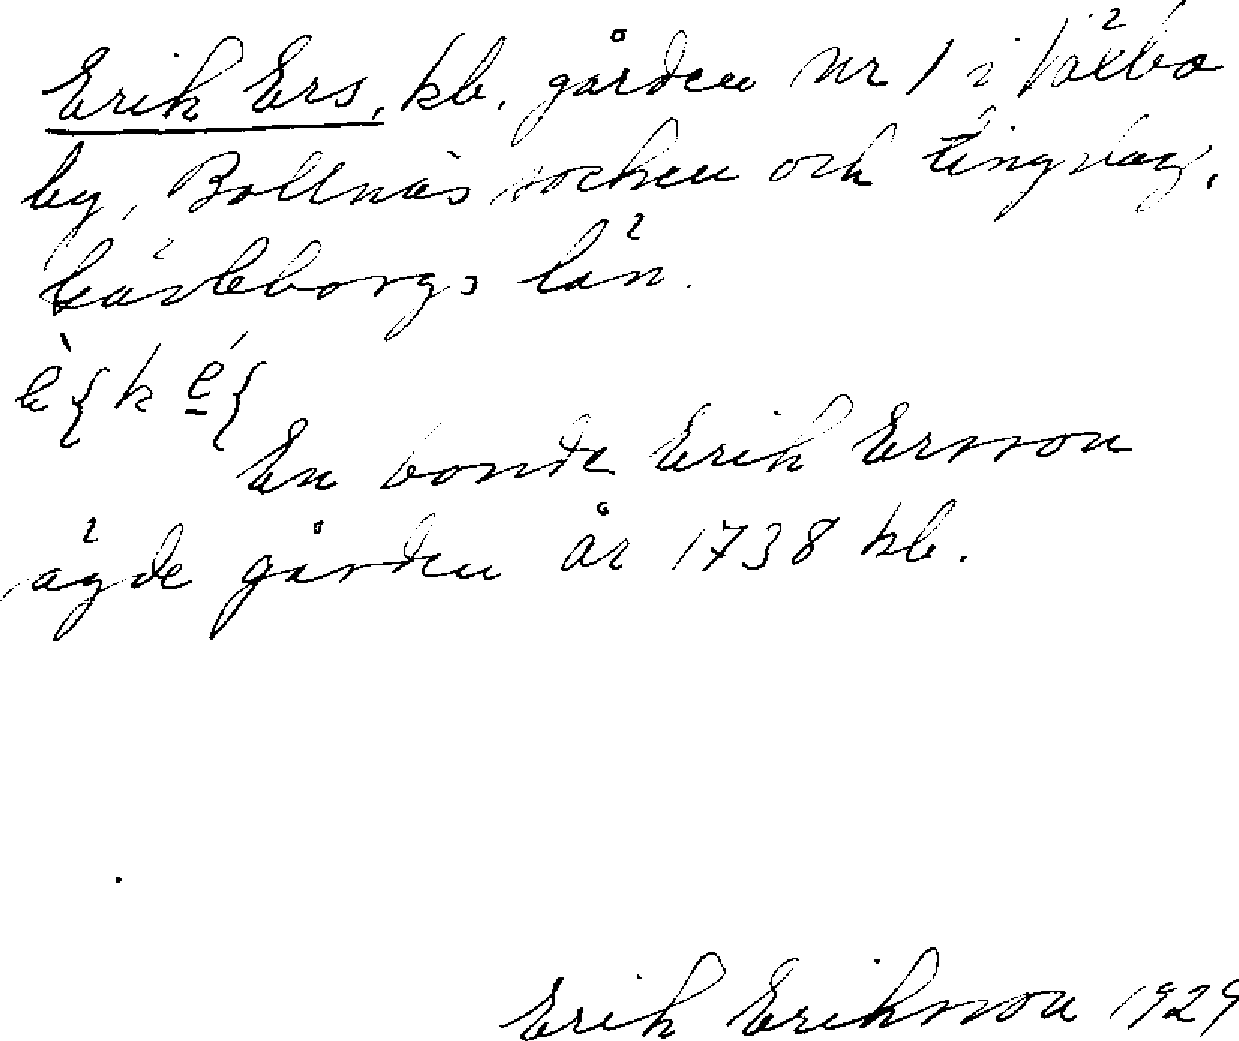 Erik Ers, kb. gården Nr 1 i Välbo
by, Bollnäs socken och tingslag,
Gävleborgs län.
En bonde Erik Ersson
ägde gården år 1738 kb.
Erik Eriksson 1929